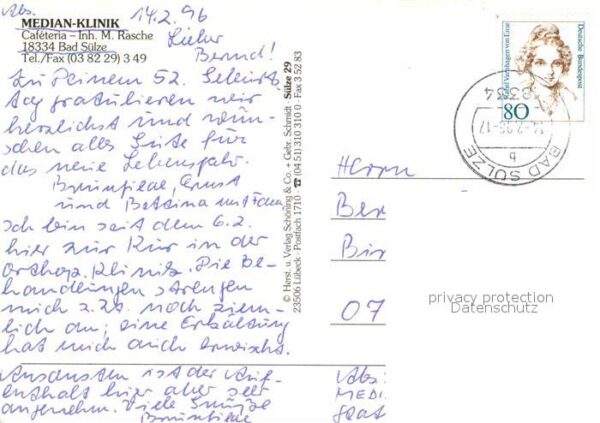 MEDIAN-KLINIK
Caféteria – Inh. M. Rasche
18334 Bad Sülze
Tel./Fax (03 82 29) 3 49
14.2.96
Lieber
Bernd!
Zu Deinem 52. Geburts
tag gratulieren wir
herzlichst und wün-
schen alles Gute für
das neue Lebensjahr.
Brunhilde, Ernst
und Bettina
Ich bin seit dem 6.2.
hier zur Kur in der
Orthop. Klinik. Die Be-
handlungen strengen
mich z.Zt. noch ziem-
lich an; eine Erkältung
hat mich auch erwischt.
Ansonsten ist der Auf-
enthalt hier aber sehr
angenehm. Viele Grüße
Brunhilde
© Herst. u. Verlag Schöning & Co. + Gebr. Schmidt Sülze 29
23506 Lübeck · Postfach 1710 · ☎ (04 51) 310 310 0 · Fax 3 52 83
Rahel Varnhagen von Ense
Deutsche Bundespost
80
18334
14.-2.96-17
b
BAD SÜLZE
Herrn
Ber
Bir
07
privacy protection
Datenschutz
Abs:
MEDI